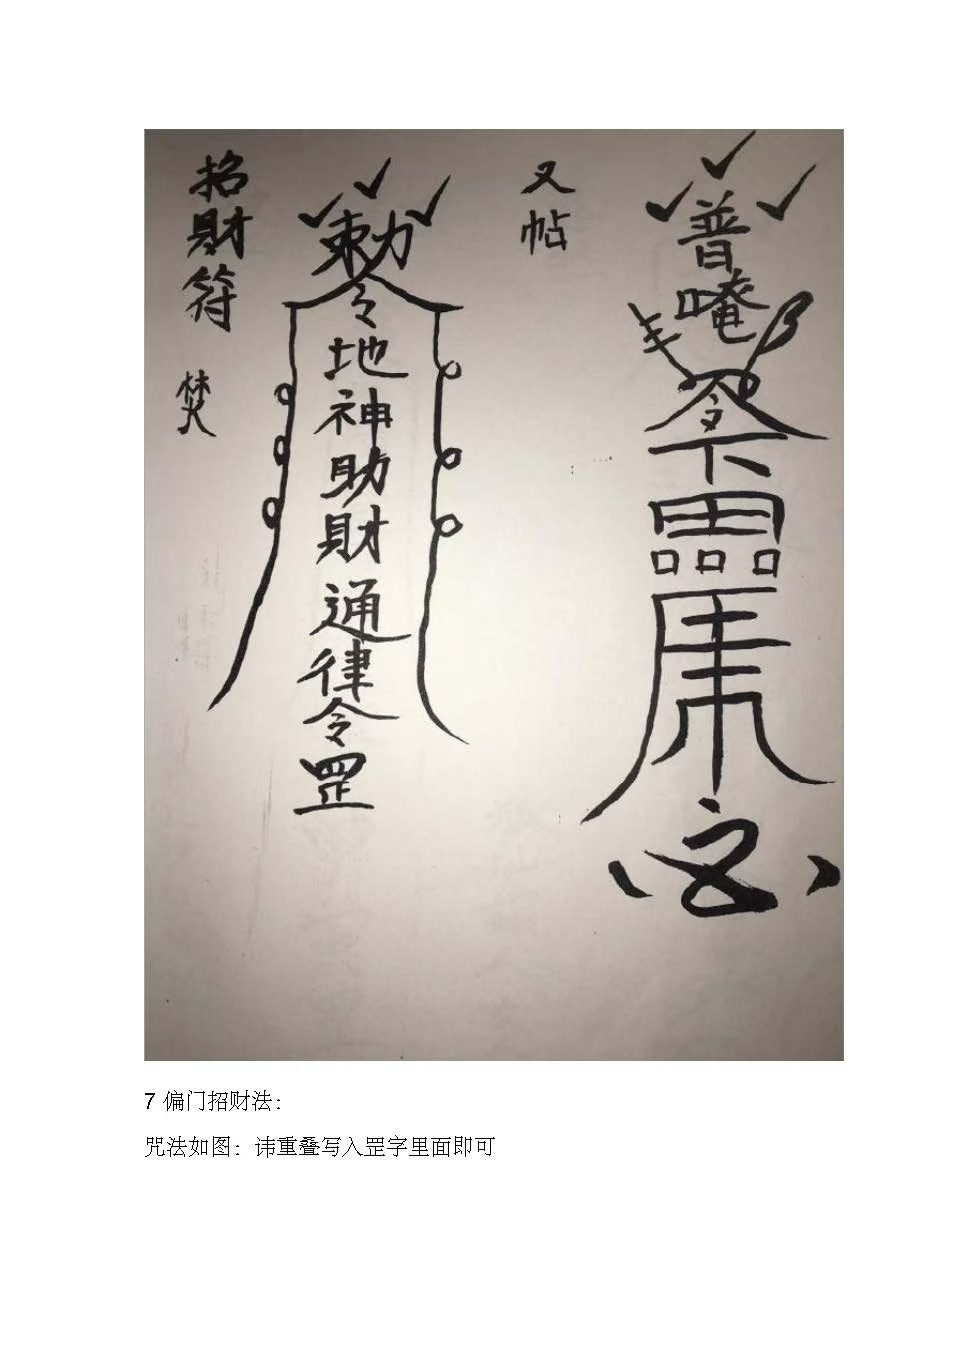 招財符 焚
勅令地神助財通律令罡
又帖
普唵
令下
7 偏门招财法：
咒法如图：讳重叠写入罡字里面即可